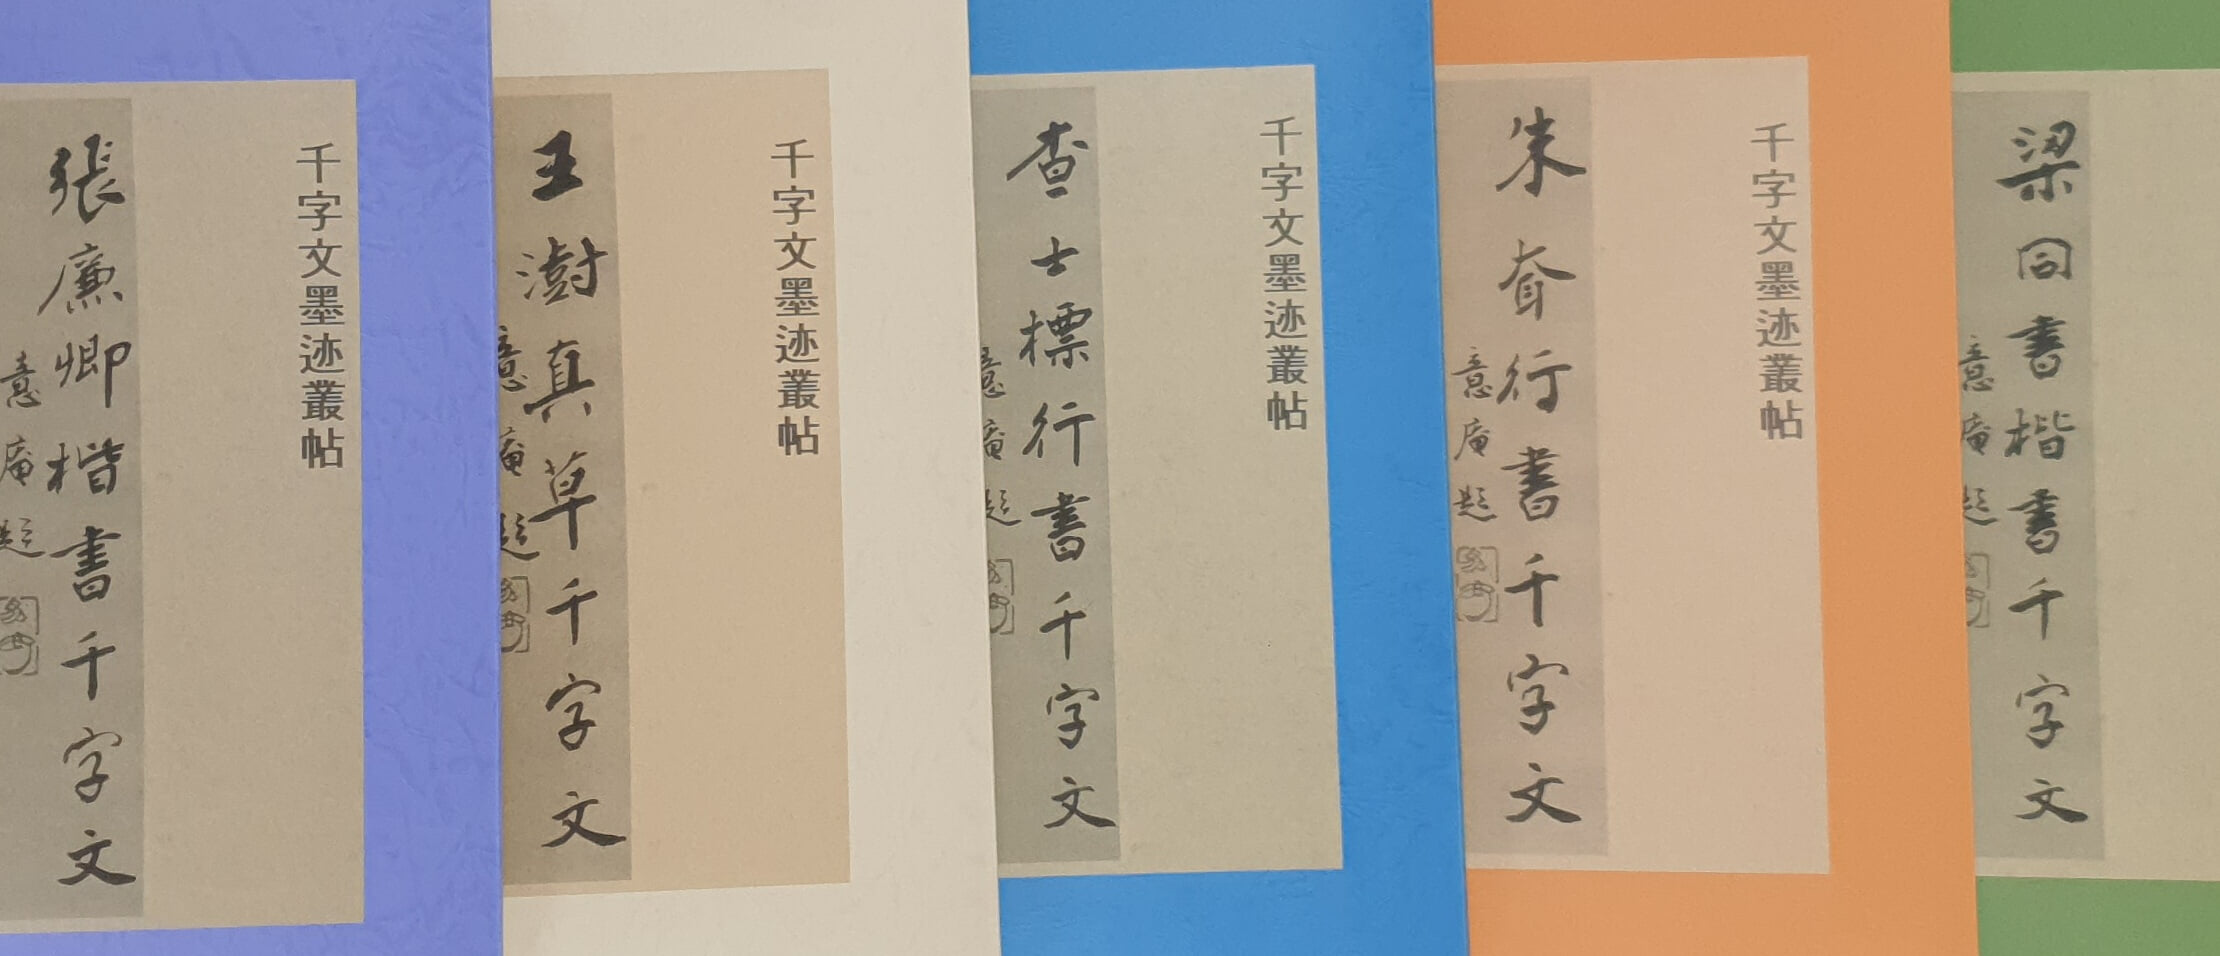 千字文墨迹叢帖
張廉卿楷書千字文
意庵題
千字文墨迹叢帖
王澍真草千字文
意庵題
千字文墨迹叢帖
查士標行書千字文
意庵題
千字文墨迹叢帖
朱耷行書千字文
意庵題
梁同書楷書千字文
意庵題